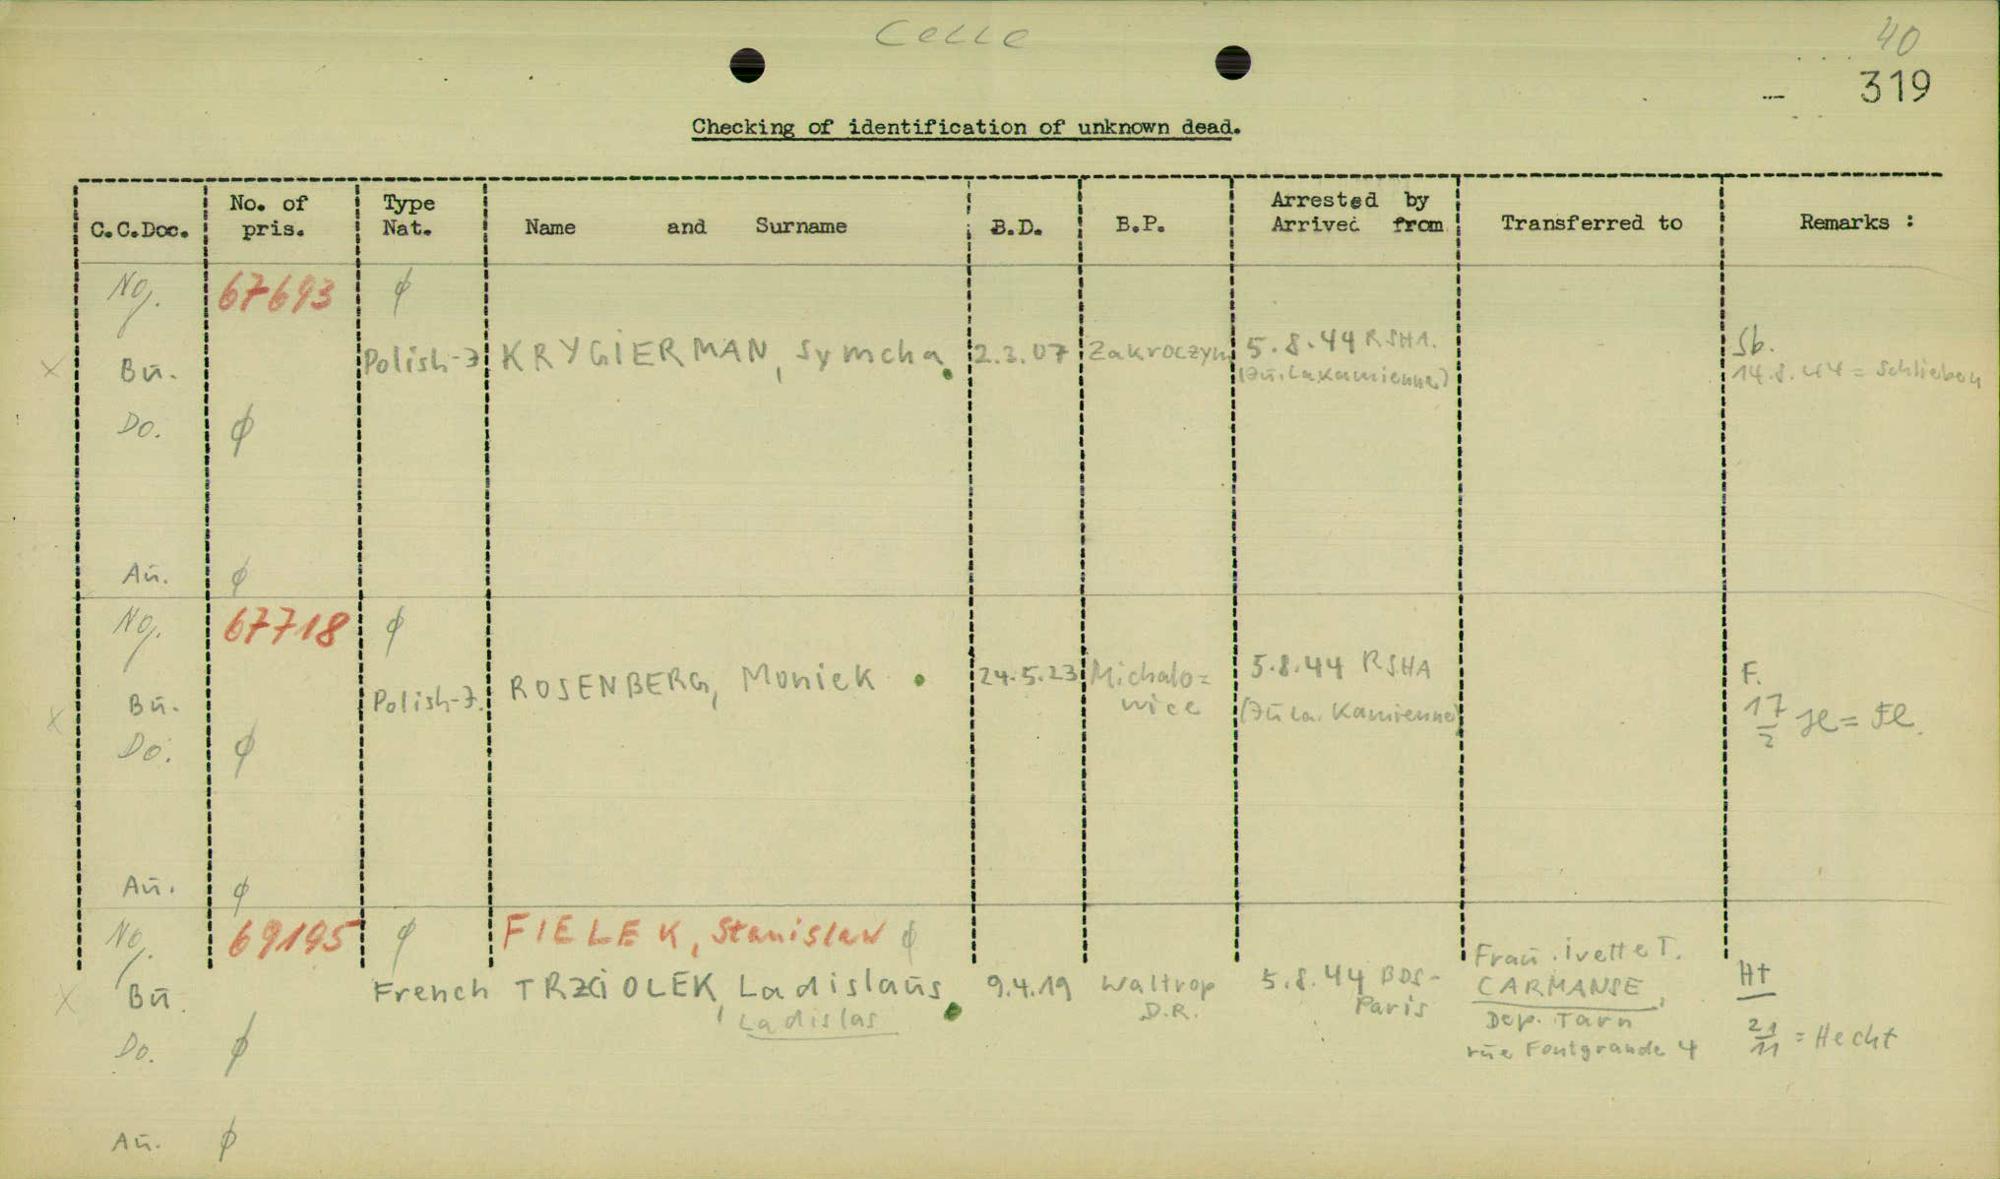 Celle
40
319
Checking of identification of unknown dead.
C.C.Doc. No. of pris. Type Nat. Name and Surname B.D. B.P. Arrested by Arrived from Transferred to Remarks :
Ng. 67693 ϕ
x Bū. Polish-J KRYGIERMAN, Symcha 2.3.07 Zakroczym 5.8.44 RSHA. Sb.
(Jū. La Kamienne) 14.8.44 = Schlieben
Do. ϕ
Aū. ϕ
Ng. 67718 ϕ
x Bū. Polish-J. ROSENBERG, Moniek 24.5.23 Michalo= 5.8.44 RSHA F.
wice (Jū La. Kamienne) 17/2 = Fl.
Do. ϕ
Aū. ϕ
Ng. 69195 ϕ FIELEK, Stanislaw ϕ
x Bū. French TRZCIOLEK, Ladislaūs 9.4.19 Waltrop 5.8.44 BDS- Fraū Ivette T. Ht
Ladislas D.R. Paris CARMANSE,
Dep. Tarn 21/11 = Hecht
rūe Fontgrande 4
Do. ϕ
Aū. ϕ